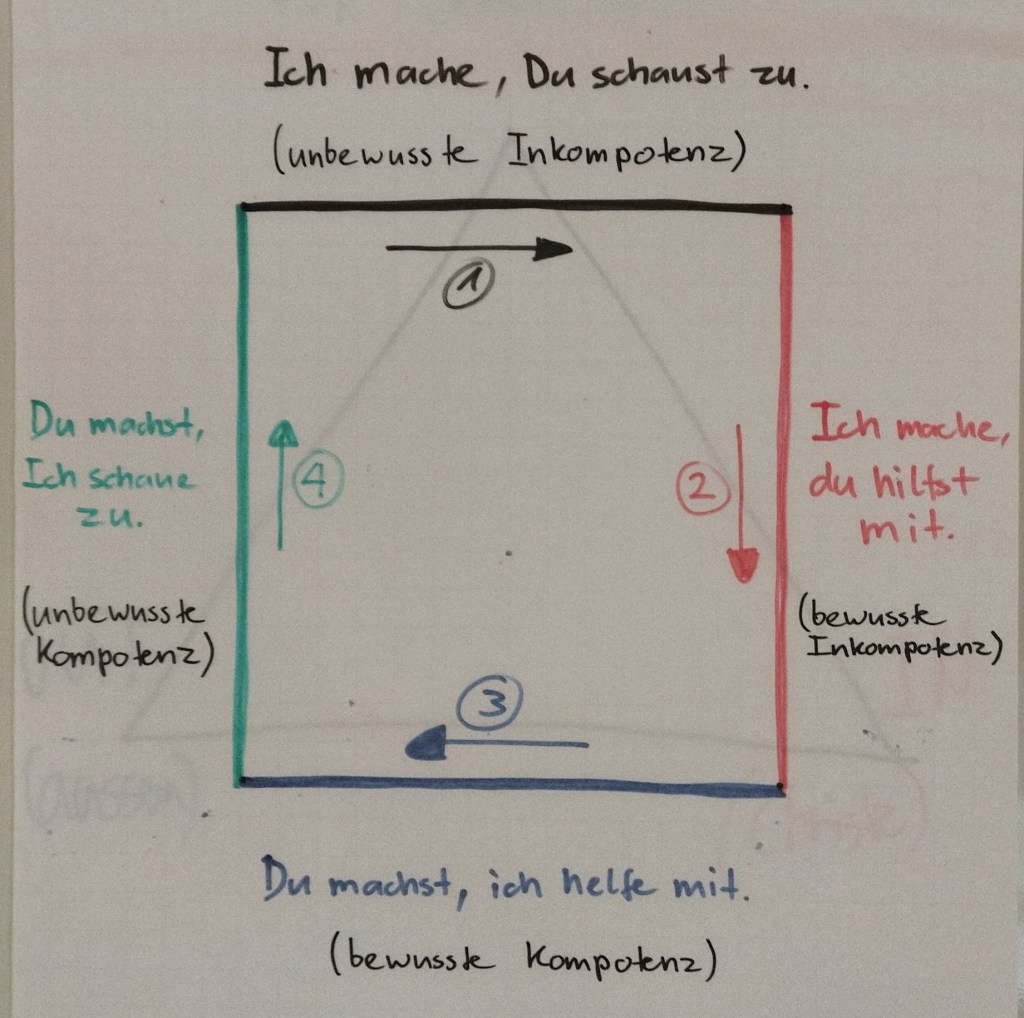 Ich mache, Du schaust zu.
(unbewusste Inkompotenz)
1
Du machst,
Ich schaue
zu.
4
2
Ich mache,
du hilfst
mit.
(unbewusste
Kompotenz)
(bewusste
Inkompotenz)
3
Du machst, ich helfe mit.
(bewusste Kompotenz)